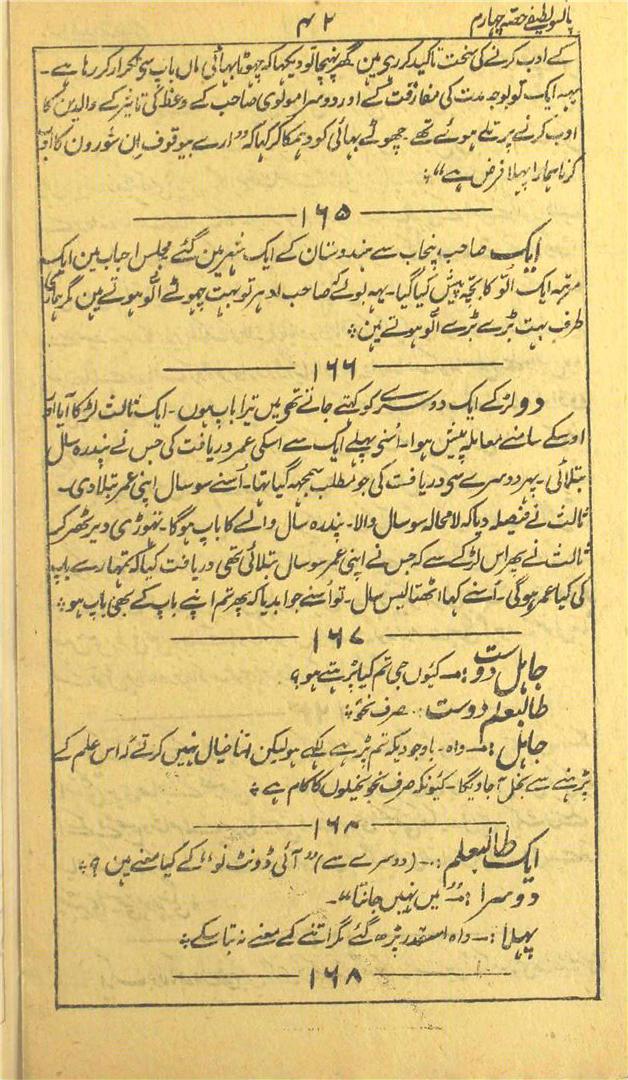 پانسو لطیفے حصہ چہارم
۴۲
کے ادب کرنے کی سخت تاکید کرری مین گھر پہنچا تو دیکھا کہ چھوٹا بھائی ماں باپ سی تکرار کر رہا ہے۔
یہہ ایک تو بوجہ مدت کی مفارقت کے اور دوسرا مولوی صاحب کے وعظ کی تاثیر کے والدین کا
ادب کرنے پر تلے ہوئے تھے۔ چھوٹے بھائی کو دہمکا کر کہا کہ "ارے بیوقوف اِن سُورون کا ادب
کرنا ہمارا پہلا فرض ہے"؞
۱۶۵
ایک صاحب پنجاب سے ہندوستان کے ایک شہر مین گئے مجلس احباب مین ایک
مرتبہ ایک اُلّو کا بچّہ پیش کیا گیا۔ یہہ بولے کہ صاحب ادہر تو بہت چھوٹے الّو ہوتے مین مگر ہماری
طرف بہت بڑے بڑے الّو ہوتے ہین؞
۱۶۶
دو لڑکے ایک دوسرے کو کہتے جاتے تھے مَیں تیرا باپ ہوں۔ ایک ثالث لڑکا آیا اور
اوسکے سامنے معاملہ پیش ہوا۔ اُسنی پہلے ایک سے اسکی عمر دریافت کی جس نے پندرہ سال
بتلائی۔ پہر دوسرے سی دریافت کی جو مطلب سمجہہ گیا تہا۔ اُسنے سو سال اپنی عمر بتلا دی۔
ثالث نے فیصلہ دیا کہ لا محالہ سو سال والا۔ پندرہ سال والے کا باپ ہوگا۔ تھوڑی دیر ٹھر کر
ثالث نے پھر اس لڑکے سے کہ جس نے اپنی عمر سو سال بتلائی تھی دریافت کیا کہ تمہارے باپ
کی کیا عمر ہوگی۔ اُسنے کہا اٹھتالیس سال۔ تو اُسنے جوابدیا کہ پھر تم اپنے باپ کے بھی باپ ہو؞
۱۶۷
جاہل دوست:۔ کیوں جی تم کیا پڑہتے ہو؟
طالبعلم دوست:۔ صرف نحو؞
جاہل:۔ واہ۔ باوجودیکہ تم پڑہے لکہے ہو لیکن اتنا خیال نہیں کرتے کہ اس علم کے
پڑہنے سے بخل آجاویگا۔ کیونکہ صرف نحو بخیلوں کا کام ہے؞
۱۶۸
ایک طالبعلم:۔ (دوسرے سے) "آئی ڈونٹ نو" کے کیا معنے ہین؟
دوسرا:۔ "میں نہیں جانتا"۔
پہلا:۔ واہ اسقدر پڑھ گئے مگر اتنے کے معنے نہ بتا سکے؞
۱۶۸